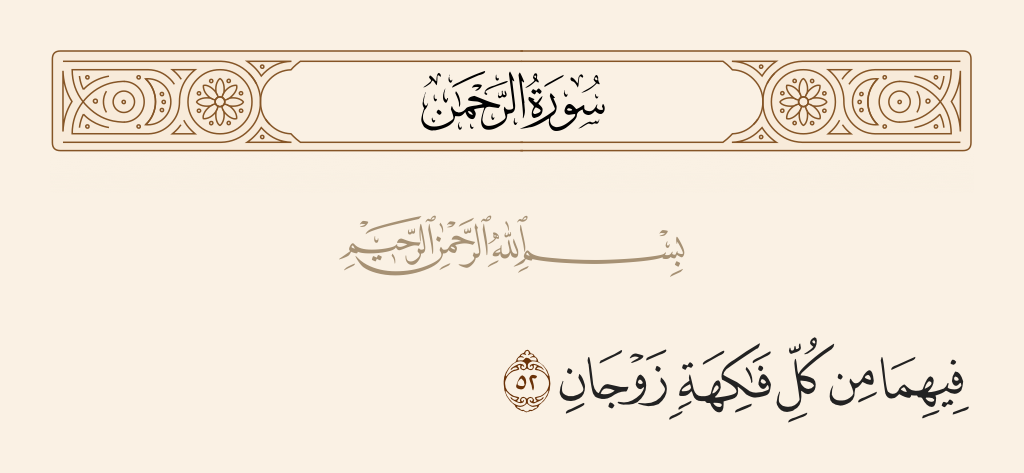 سُورَةُ الرَّحْمَٰن
بِسْمِ ٱللَّهِ ٱلرَّحْمَٰنِ ٱلرَّحِيمِ
فِيهِمَا مِن كُلِّ فَٰكِهَةٍ زَوْجَانِ ٥٢